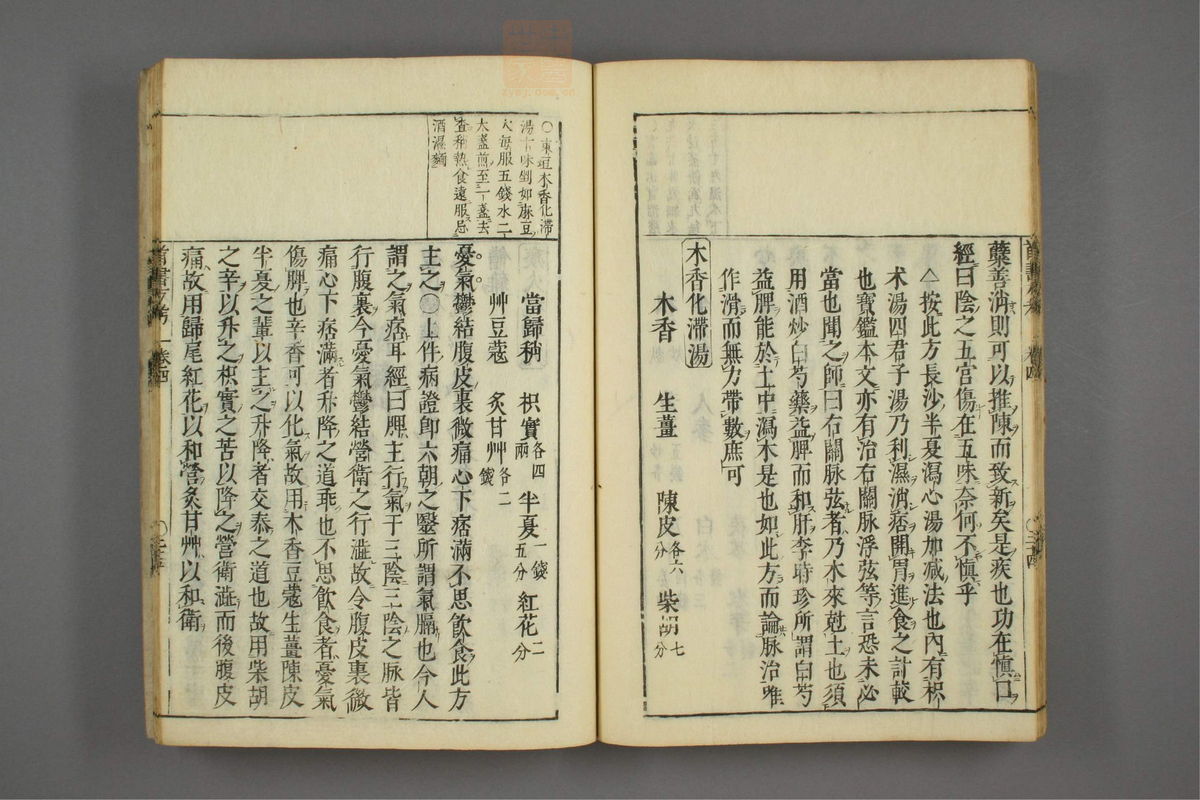 糵善消則可以推陳而致新矣是疾也功在慎口
經曰陰之五宮傷在五味奈何不慎乎
△按此方長沙半夏瀉心湯加減法也內有枳
术湯四君子湯乃利濕消痞開胃進食之計較
也寶鑑本文亦有治右關脉浮弦等言恐未必
當也聞之師曰右關脉弦者乃木來尅土也須
用酒炒白芍藥益脾而和肝李時珍所謂白芍
益脾能於土中瀉木是也如此方而論脉治唯
作滑而無力帶數庶可
木香化滯湯
木香 生薑 陳皮各六分 柴胡七分
○東垣木香化滯
湯十味剉如麻豆
大每服五錢水二
大盞煎至一盞去
查稍熱食遠服忌
酒濕麵
當歸稍 枳實各四兩 半夏一錢五分 紅花二分
艸豆蔲 炙甘艸各二錢
憂氣鬱結腹皮裏微痛心下痞滿不思飲食此方
主之○上件病證卽六朝之醫所謂氣膈也今人
謂之氣痞耳經曰脾主行氣于三陰三陰之脉皆
行腹裏今憂氣鬱結營衛之行澁故令腹皮裏微
痛心下痞滿者升降之道乖也不思飲食者憂氣
傷脾也辛香可以化氣故用木香豆蔲生薑陳皮
半夏之輩以主之升降者交泰之道也故用柴胡
之辛以升之枳實之苦以降之營衛澁而後腹皮
痛故用歸尾紅花以和營炙甘艸以和衛